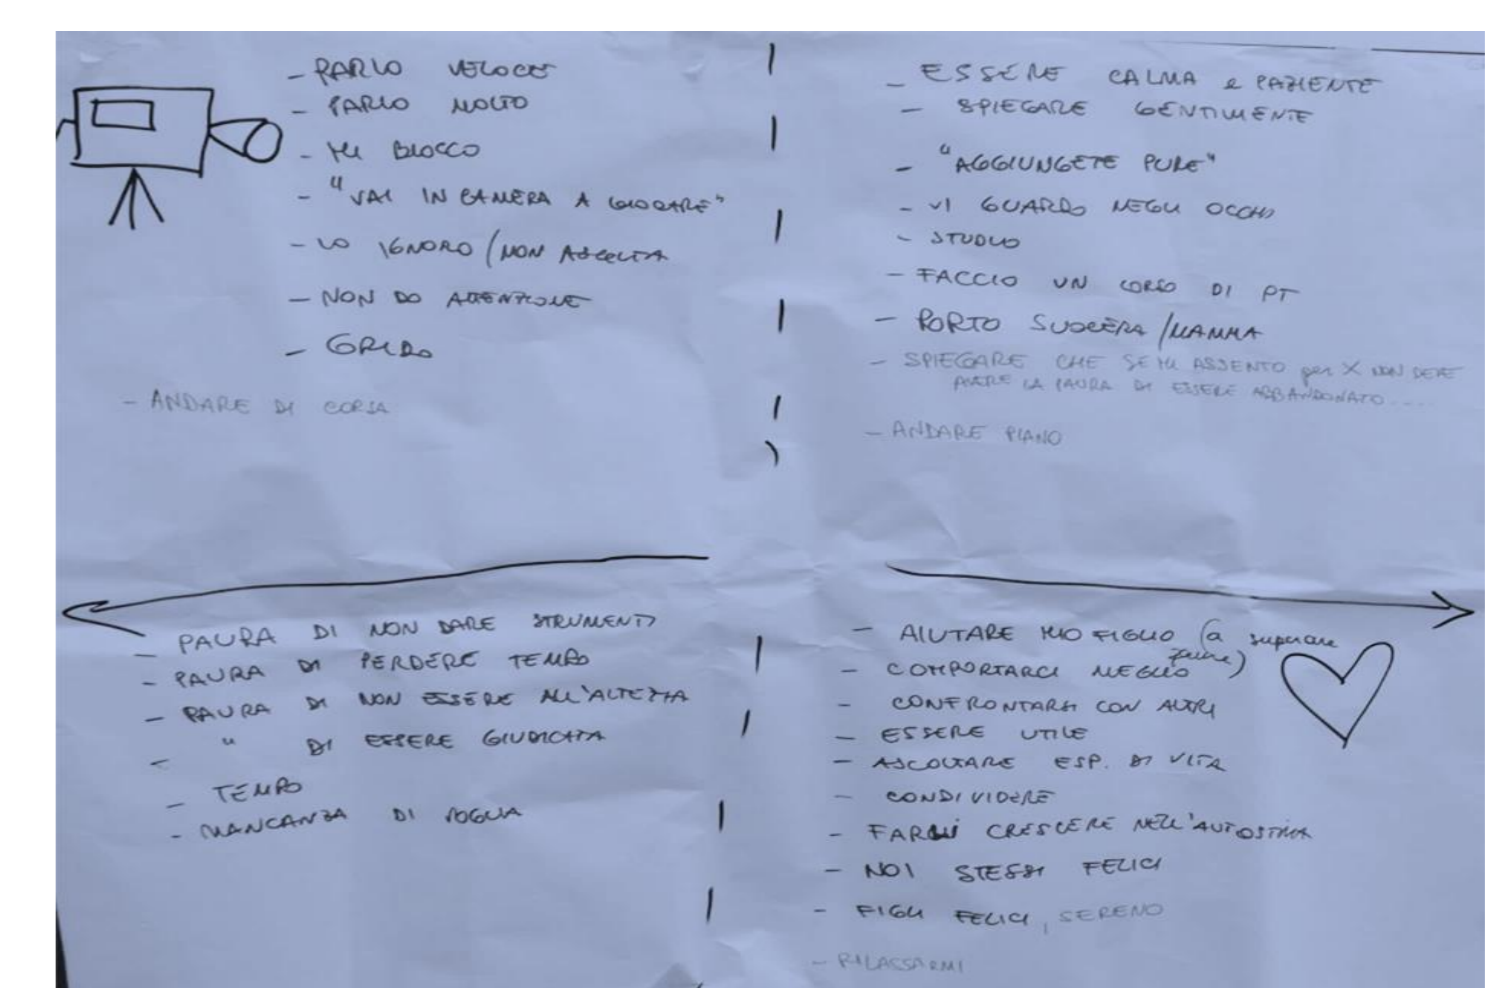 - PARLO VELOCE
- PARLO MOLTO
- MI BLOCCO
- "VAI IN CAMERA A GIOCARE"
- LO IGNORO / NON ASCOLTA
- NON DO ATTENZIONE
- GRIDO
- ANDARE DI CORSA
- ESSERE CALMA e PAZIENTE
- SPIEGARE GENTILMENTE
- "AGGIUNGETE PURE"
- VI GUARDO NEGLI OCCHI
- STUDIO
- FACCIO UN CORSO DI PT
- PORTO SUOCERA / MAMMA
- SPIEGARE CHE SE MI ASSENTO per X NON DEVE
AVERE LA PAURA DI ESSERE ABBANDONATO....
- ANDARE PIANO
- PAURA DI NON DARE STRUMENTI
- PAURA DI PERDERE TEMPO
- PAURA DI NON ESSERE ALL'ALTEZZA
- " DI ESSERE GIUDICATA
- TEMPO
- MANCANZA DI VOGLIA
- AIUTARE MIO FIGLIO (a superare
paure)
- COMPORTARCI MEGLIO
- CONFRONTARSI CON ALTRI
- ESSERE UTILE
- ASCOLTARE ESP. DI VITA
- CONDIVIDERE
- FARLI CRESCERE NELL'AUTOSTIMA
- NOI STESSI FELICI
- FIGLI FELICI, SERENO
- RILASSARMI